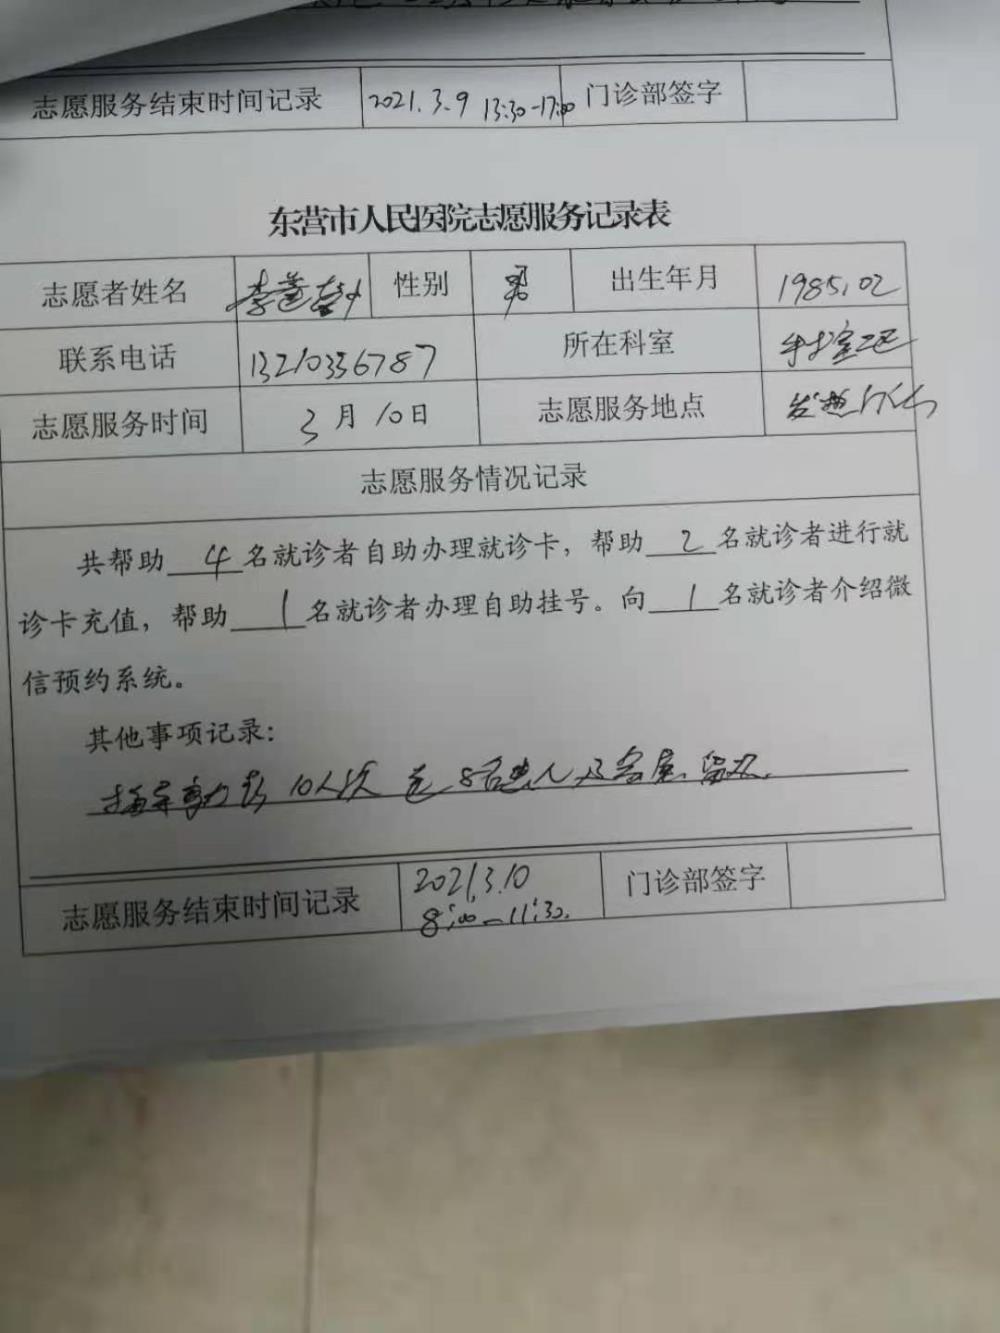 志愿服务结束时间记录 2021.3.9 13:30-17:00 门诊部签字
东营市人民医院志愿服务记录表
志愿者姓名 李 性别 男 出生年月 1985.02
联系电话 13210336787 所在科室 手术室
志愿服务时间 3月10日 志愿服务地点 发热
志愿服务情况记录
共帮助 4 名就诊者自助办理就诊卡，帮助 2 名就诊者进行就
诊卡充值，帮助 1 名就诊者办理自助挂号。向 1 名就诊者介绍微
信预约系统。
其他事项记录：
10人次 患人及家属
志愿服务结束时间记录 2021.3.10 门诊部签字
8:00-11:30.